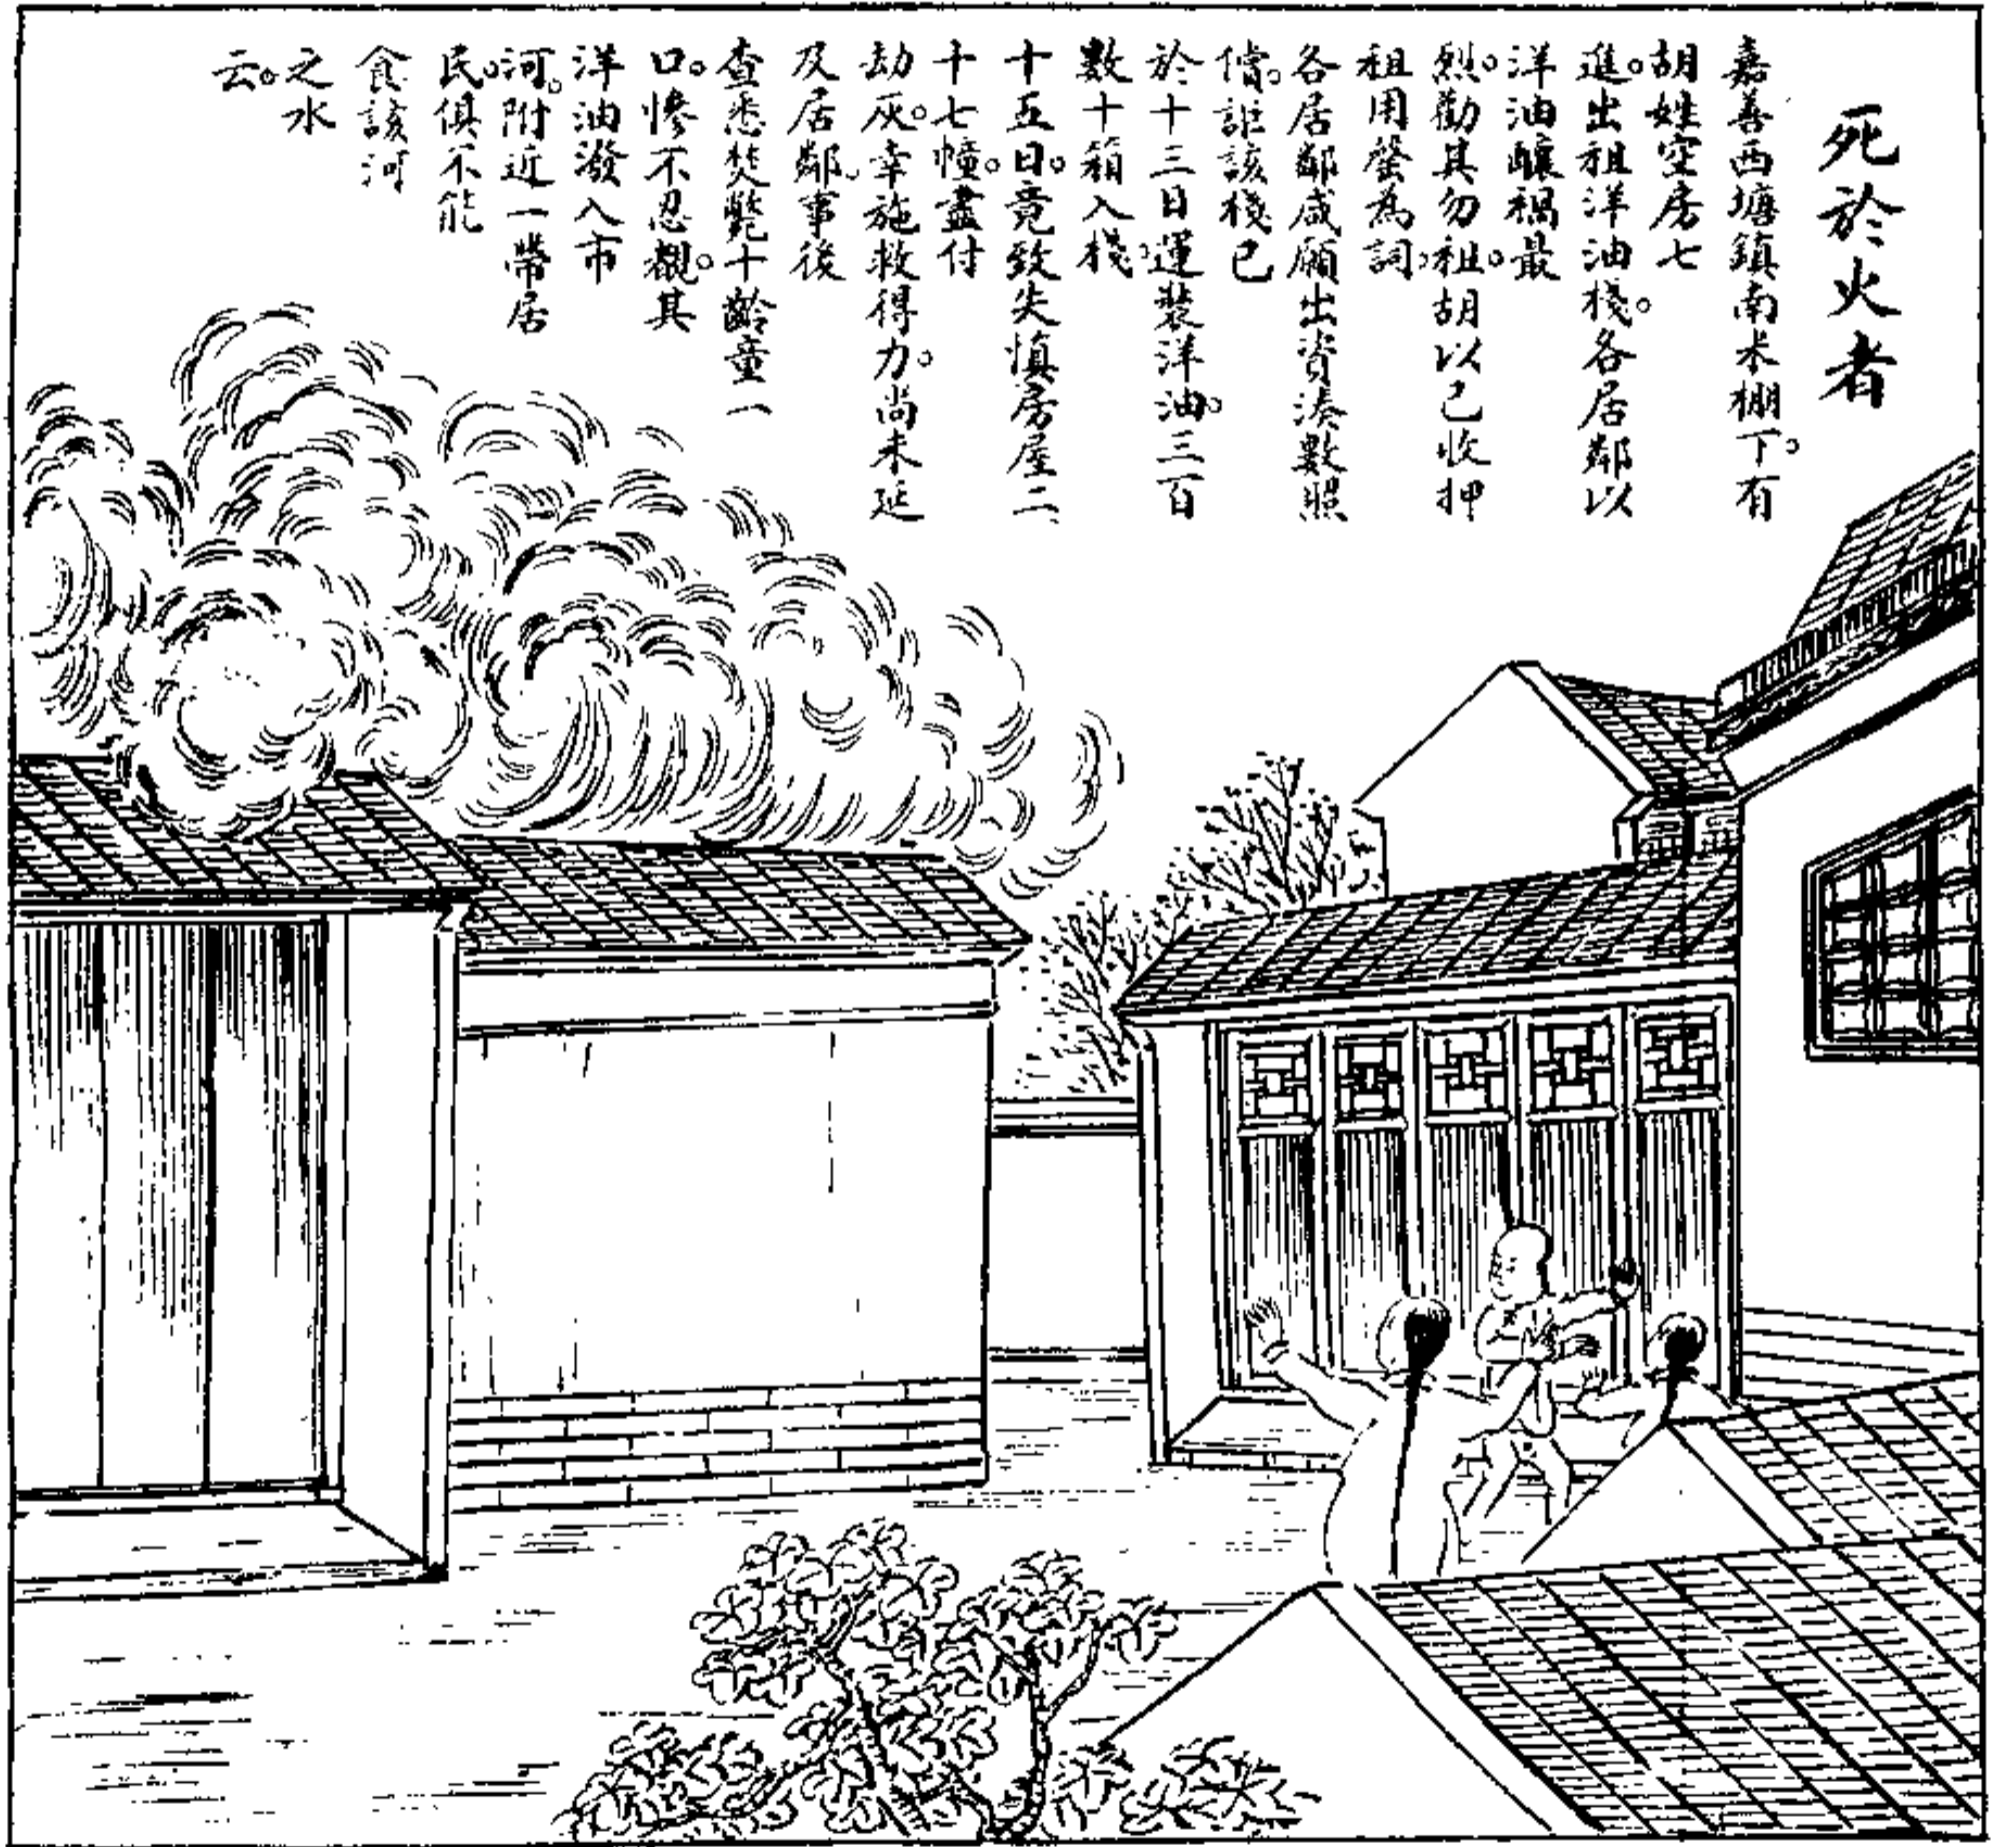 死於火者
嘉善西塘鎮南米棚下。有
胡姓空房七
進。出租洋油棧。各居鄰以
洋油釀禍最
烈。勸其勿租。胡以已收押
租用罄為詞。
各居鄰咸願出資湊數照
償。詎該棧已
於十三日運裝洋油。三百
數十箱入棧。
十五日。竟致失慎房屋二
十七幢。盡付
劫灰。幸施救得力。尚未延
及居鄰。事後
查悉焚斃十齡童一
口。慘不忍覩。其
洋油潑入市
河。附近一帶居
民。俱不能
食該河
之水
云。